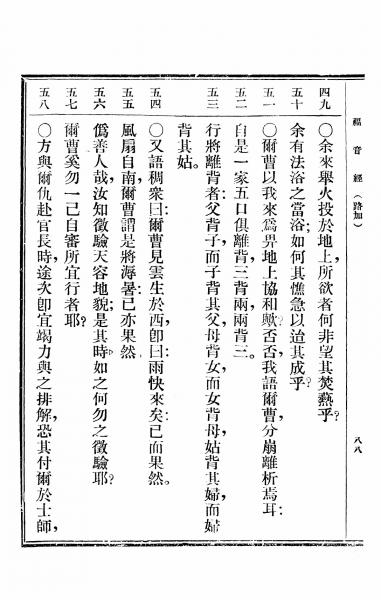 福音經（路加）
八八
四九 〇余來舉火投於地上，所欲者何非望其焚爇乎？
五十 余有法浴之當浴；如何其憔急以迨其成乎？
五一 〇爾曹以我來爲畀地上協和歟？否否，我語爾曹分崩離析焉耳：
五二 自是一家五口俱離背，三背兩，兩背三。
五三 行將離背者：父背子，而子背其父，母背女，而女背母，姑背其婦，而婦
背其姑。
五四 〇又語稠衆曰：爾曹見雲生於西，卽曰：雨快來矣；已而果然。
五五 風扇自南，爾曹謂是將溽暑：已亦果然
五六 僞善人哉，汝知徵驗天容地貌；是其時如之何勿之徵驗耶？
五七 爾曹奚勿一己自審所宜行者耶？
五八 〇方與爾仇赴官長時，途次卽宜竭力與之排解，恐其付爾於士師，